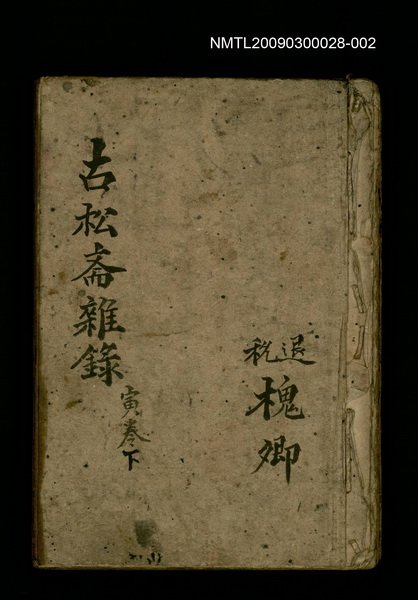 NMTL20090300028-002
退税
槐卿
古松斋雜錄
寅卷下